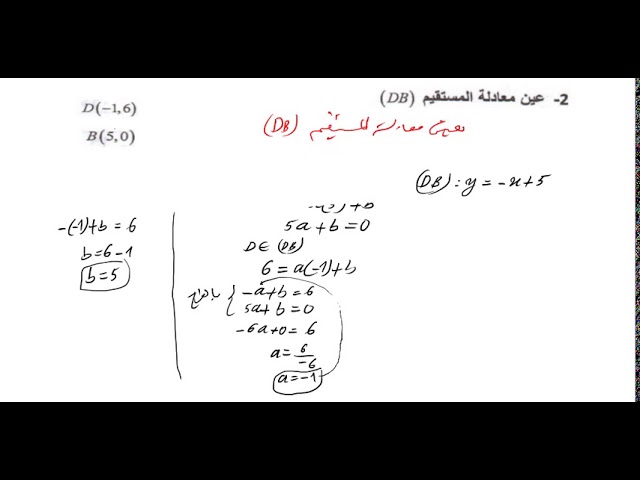 2- عين معادلة المستقيم (DB)
D(-1,6)
B(5,0)
تعيين معادلة المستقيم (DB)
(DB): y = -x+5
5a + b = 0
D ∈ (DB)
6 = a(-1)+b
-a+b = 6
5a+b = 0
-6a+0 = 6
a = 6/-6
a = -1
-(-1)+b = 6
b = 6-1
b = 5